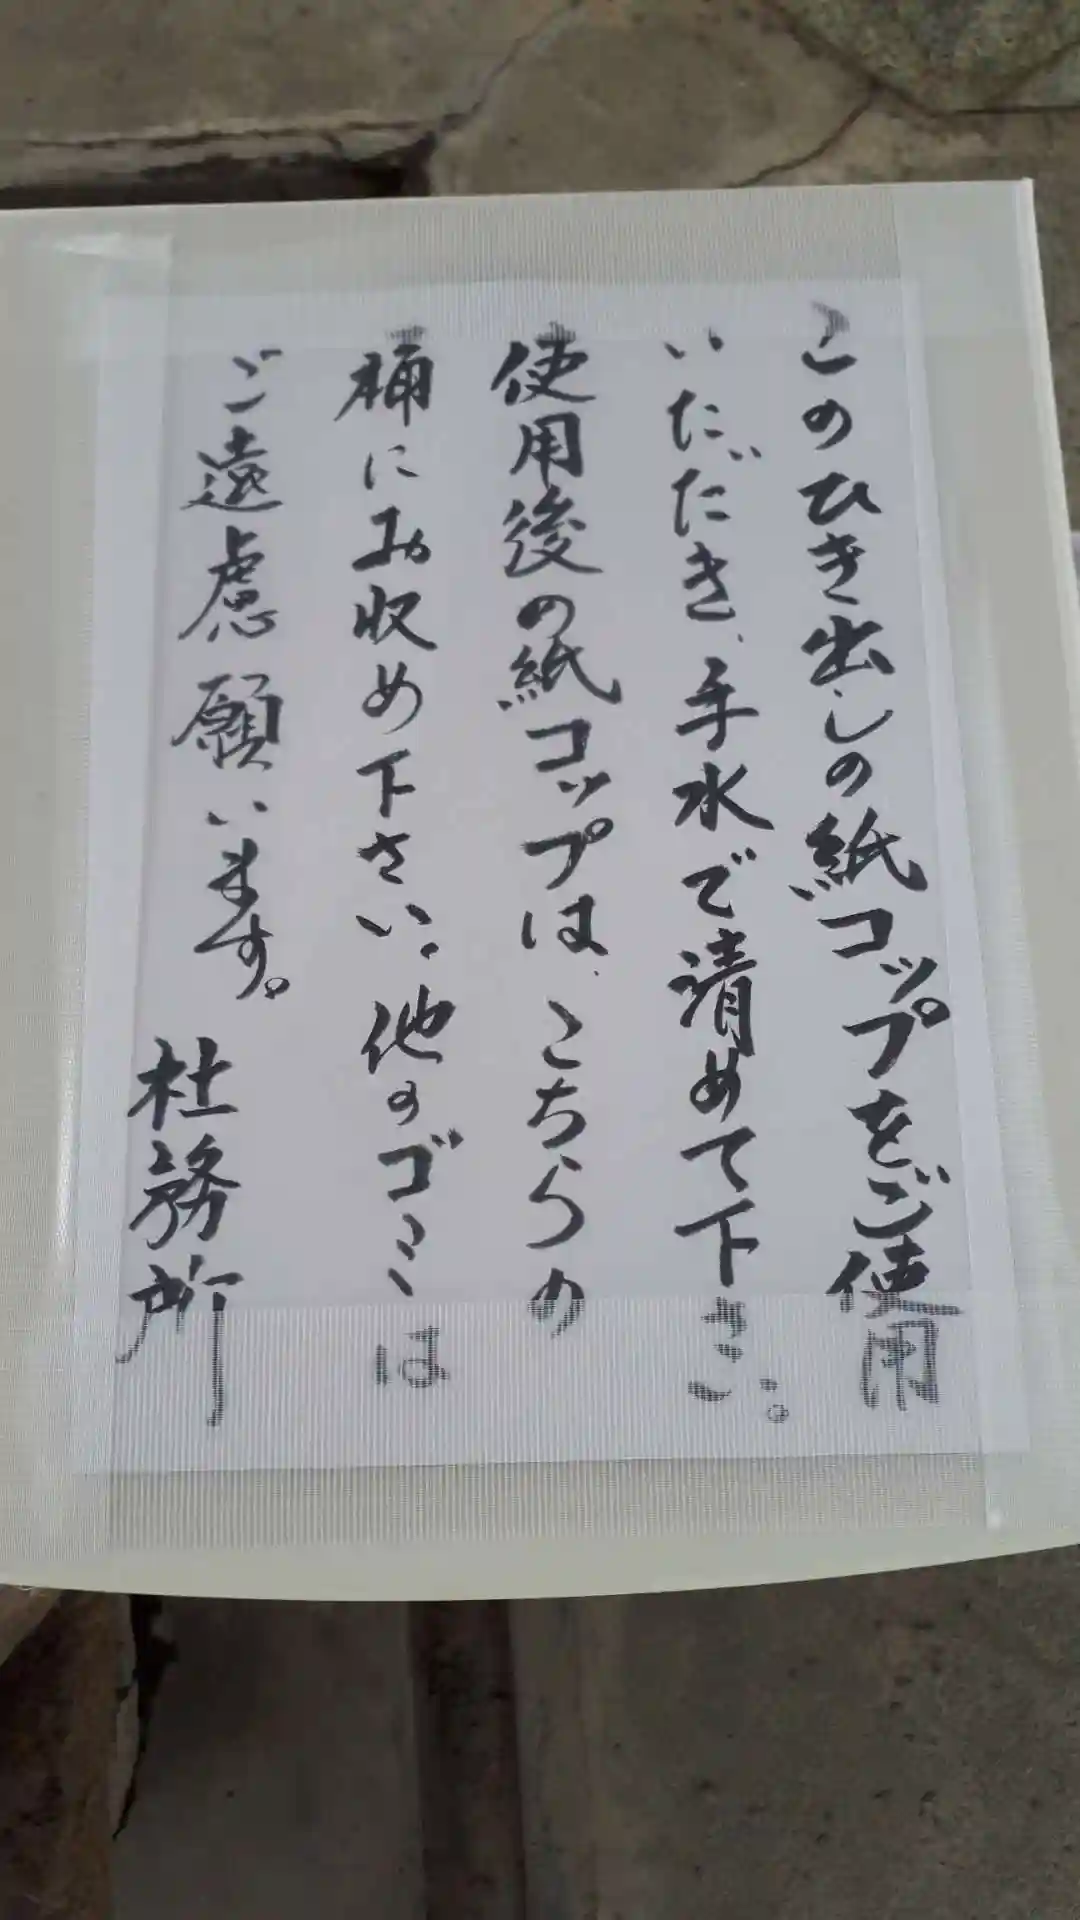 このひき出しの紙コップをご使用
いただき、手水で清めて下さい。
使用後の紙コップは、こちらの
桶にお収め下さい。他のゴミは
ご遠慮願います。
社務所